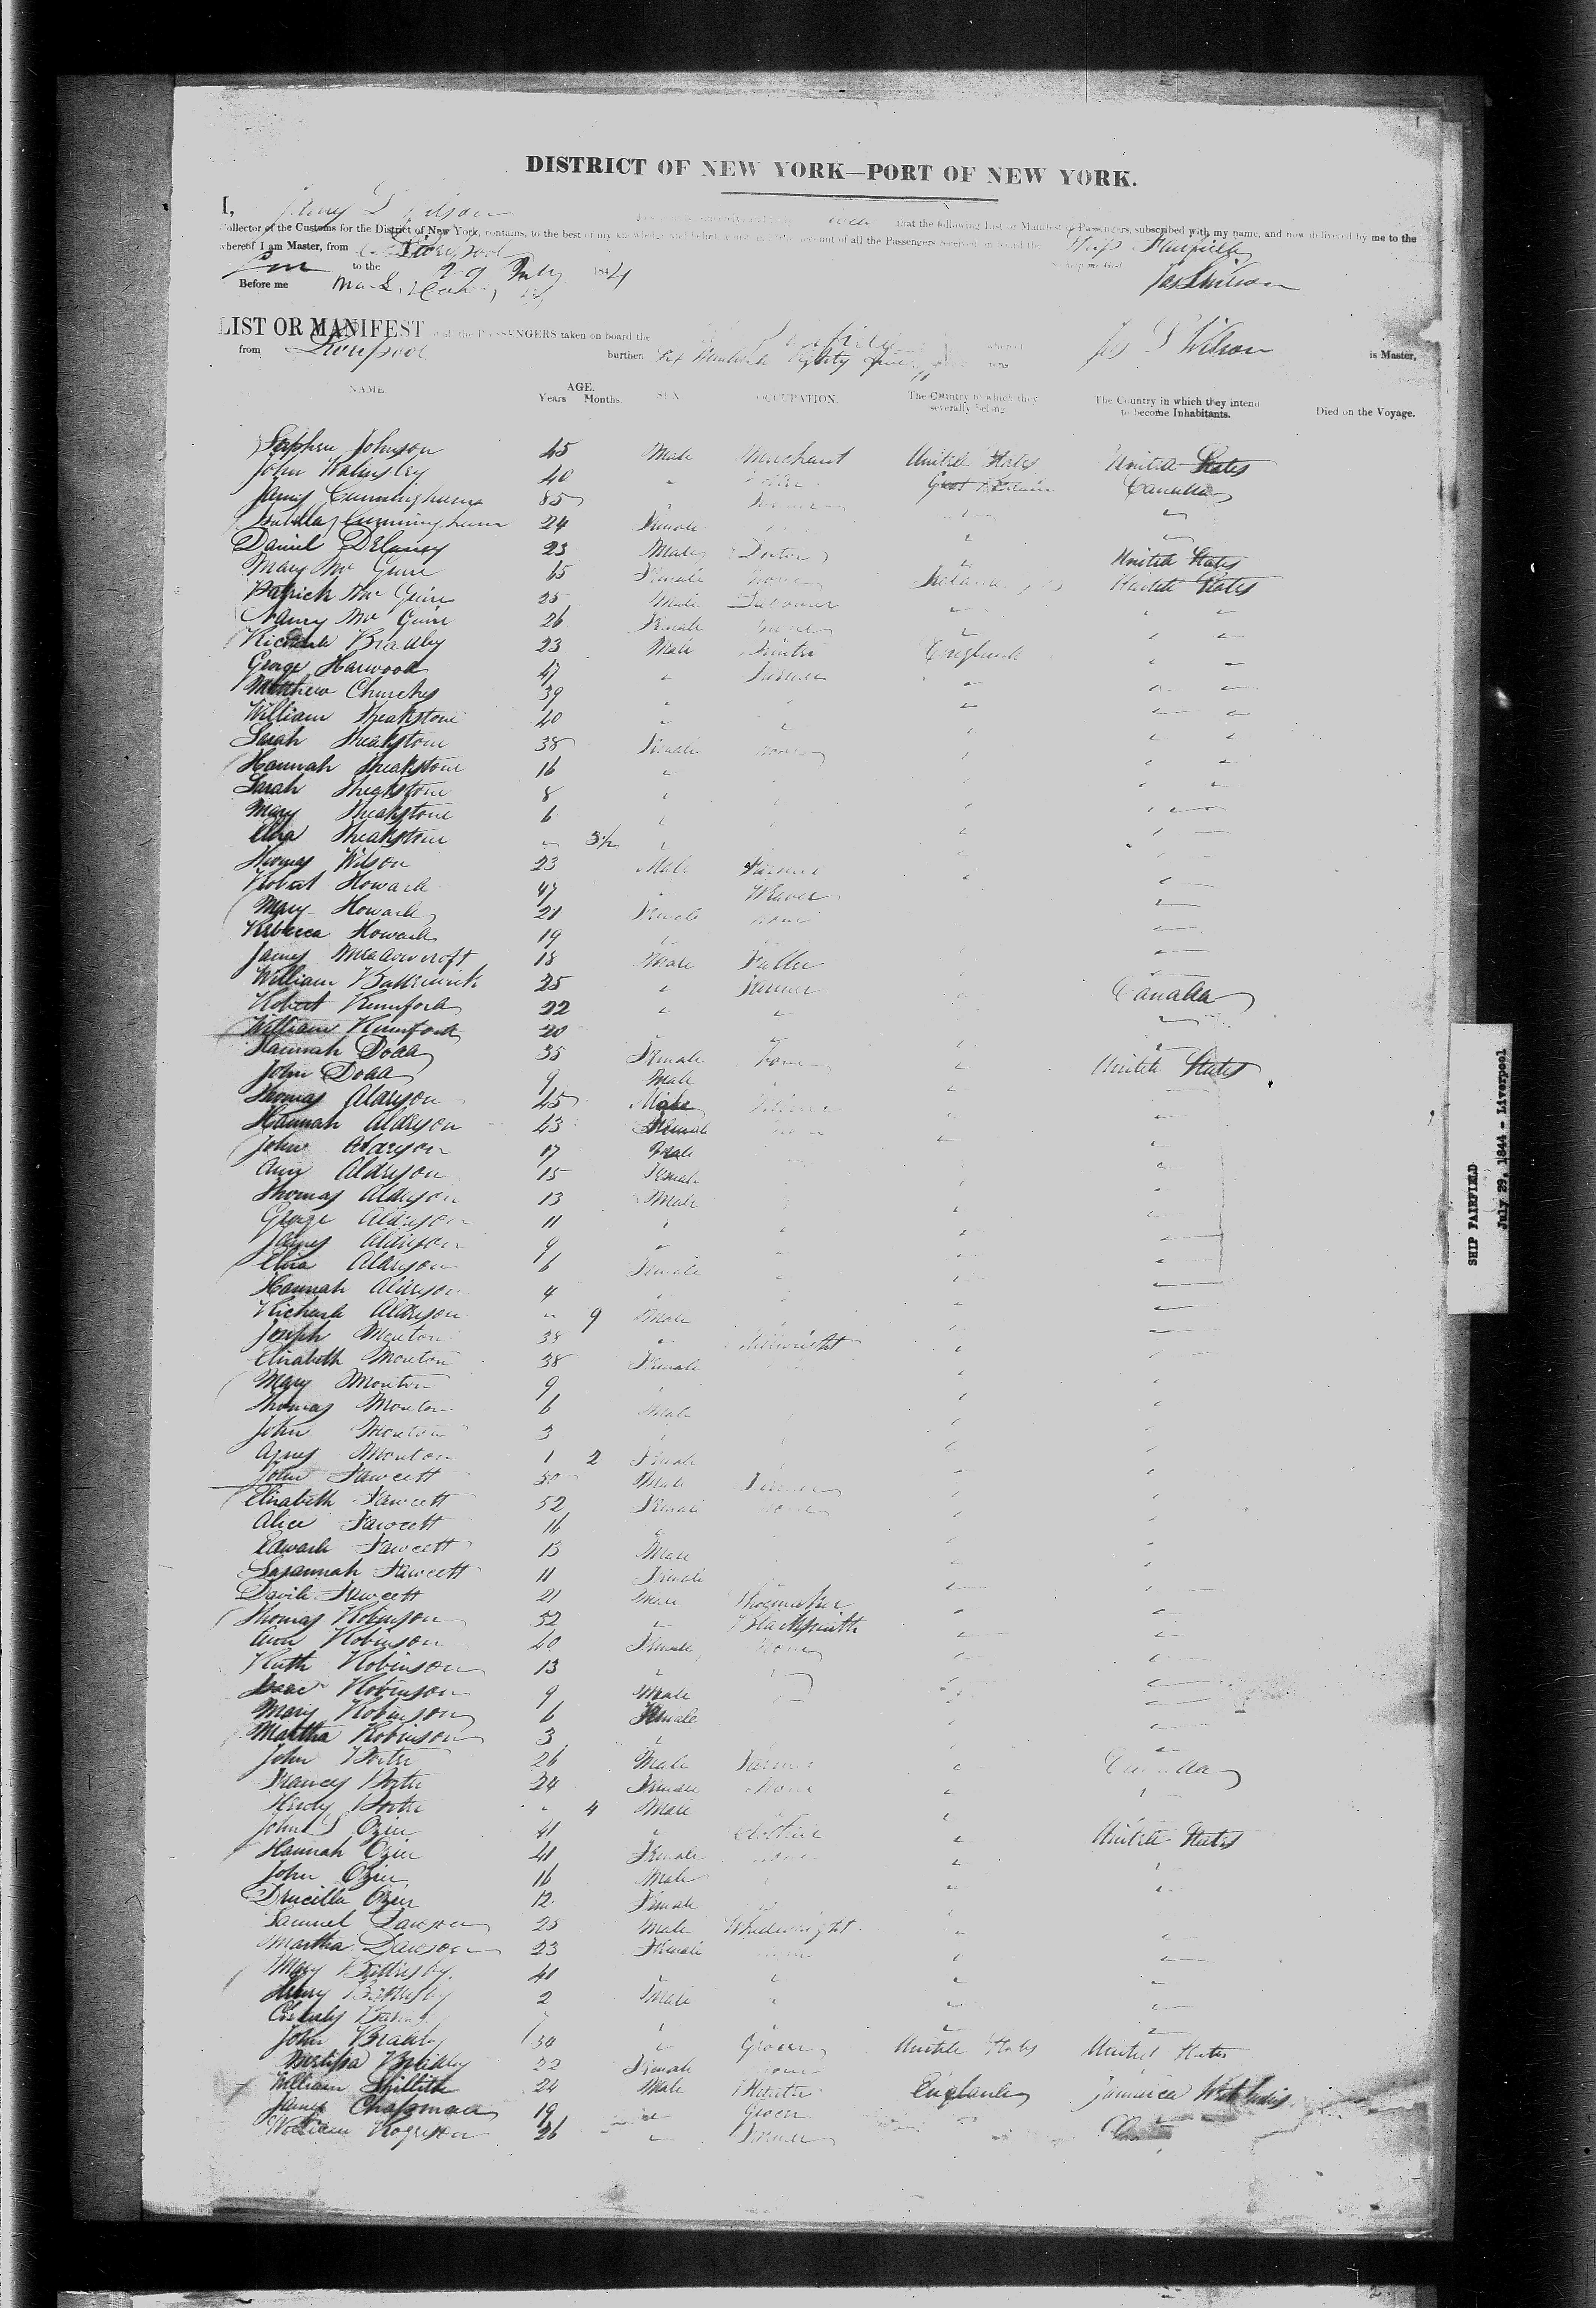 DISTRICT OF NEW YORK—PORT OF NEW YORK.
I, James D Wilson that the following List or Manifest of Passengers, subscribed with my name, and now delivered by me to the
Collector of the Customs for the District of New York, contains, to the best of my knowledge and belief account of all the Passengers received on board the Ship Fairfield
whereof I am Master, from Liverpool
to the 29 July 1844
Before me
LIST OR MANIFEST all the PASSENGERS taken on board the whereof Jas D Wilson is Master,
from Liverpool burthen Eighty five tons
NAME. AGE. Years Months. SEX. OCCUPATION. The Country to which they severally belong The Country in which they intend to become Inhabitants. Died on the Voyage.
Stephen Johnson 45 Male Merchant United States United States
John Walmsley 40 " Great Britain Canada
James Cunningham 35 " Farmer " "
Isabella Cunningham 24 Female " "
Daniel Delaney 23 Male Doctor " United States
Mary Mc Guire 65 Female None Ireland United States
Patrick Mc Guire 25 Male Labourer " " "
Nancy Mc Guire 26 Female None " " "
Richard Bradley 23 Male Printer England " "
George Harwood 47 " Farmer " " "
Matthew Churches 39 " " " " "
William Theakstone 40 " " " "
Sarah Theakstone 38 Female None " " "
Hannah Theakstone 16 " " " "
Sarah Theakstone 8 " " " "
Mary Theakstone 6 " " " "
Eliza Theakstone " 3½ " " "
Thomas Wilson 23 Male Farmer " "
Robert Howard 47 " Weaver "
Mary Howard 21 Female None "
Rebecca Howard 19 " "
James Meadowcroft 18 Male Fuller " "
William Butterwick 25 " Farmer " Canada
Robert Rumford 22 " " "
William Rumford 20 " " "
Hannah Dodd 35 Female None " United States
John Dodd 9 Male " "
Thomas Alderson 45 Male Farmer " "
Hannah Alderson 43 Female None " "
John Alderson 17 Male "
Ann Alderson 15 Female " "
Thomas Alderson 13 Male " "
George Alderson 11 " " " "
James Alderson 9 " " "
Eliza Alderson 6 Female " "
Hannah Alderson 4 " " "
Richard Alderson " 9 Male " "
Joseph Monton 38 " Millwright " "
Elizabeth Monton 38 Female "
Mary Monton 9 " " "
Thomas Monton 6 Male " "
John Monton 3 " " "
Agnes Monton 1 2 Female " "
John Fawcett 50 Male Farmer " "
Elizabeth Fawcett 52 Female None " "
Alice Fawcett 16 " " "
Edward Fawcett 13 Male " "
Susannah Fawcett 11 Female " "
David Fawcett 21 Male Shoemaker " "
Thomas Robinson 52 " Blacksmith " "
Ann Robinson 40 Female None " "
Ruth Robinson 13 " " "
Isaac Robinson 9 Male " "
Mary Robinson 6 Female " "
Martha Robinson 3 " "
John Porter 26 Male Farmer " Canada
Nancy Porter 24 Female None " "
Henry Porter " 4 Male "
John S Ozier 41 " Clothier " United States
Hannah Ozier 41 Female None " "
John Ozier 16 Male " "
Drucilla Ozier 12 Female "
Samuel Dawson 25 Male Wheelwright " "
Martha Dawson 23 Female None " "
Mary Battersby 40 " " " "
Henry Battersby 2 Male " " "
Charles " " " "
John Bradley 34 " Grocer United States United States
Bradley 22 Female None
William Shillitto 24 Male England Jamaica West Indies
James Chapman 19 " Grocer
William Rogerson 26 " Farmer
SHIP FAIRFIELD
July 29, 1844 - Liverpool